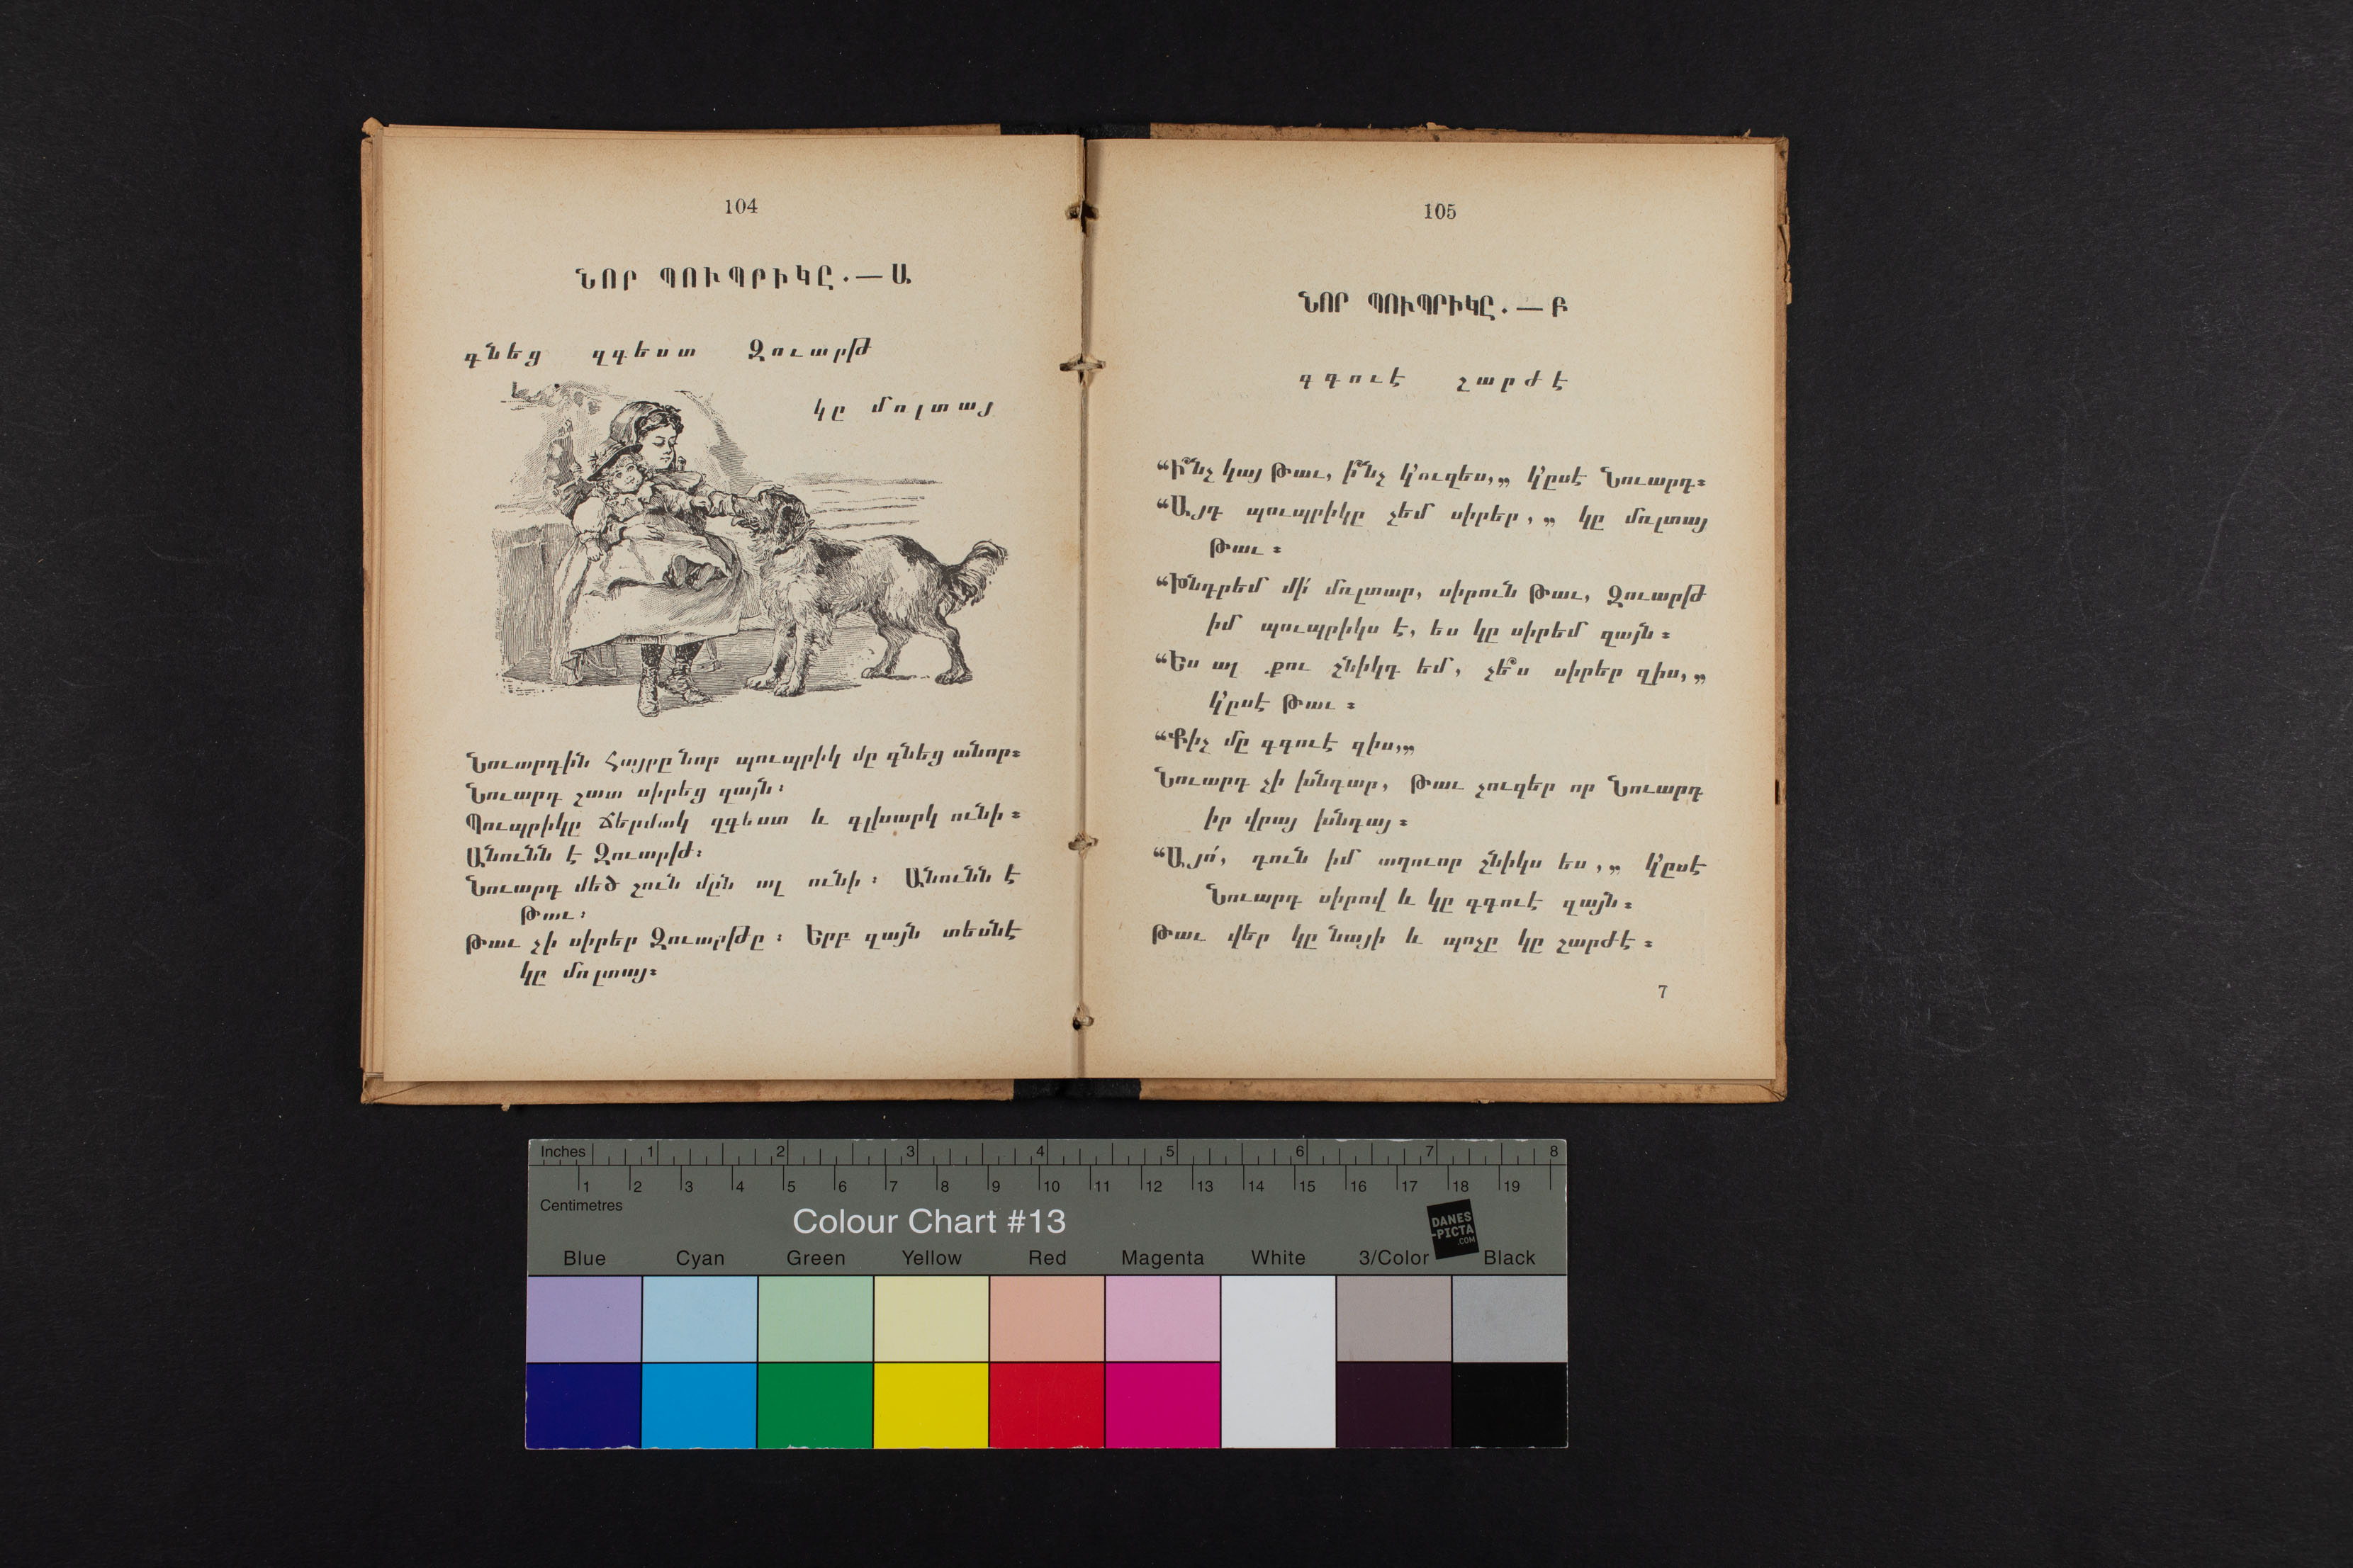 104
ՆՈՐ ՊՈՒՊՐԻԿԸ.— Ա
գնեց զգեստ Զուարթ
կը մռլտայ
Նուարդին Հայրը նոր պուպրիկ մը գնեց անոր։
Նուարդ շատ սիրեց զայն։
Պուպրիկը ճերմակ զգեստ և գլխարկ ունի։
Անունն է Զուարթ։
Նուարդ մեծ շուն մըն ալ ունի։ Անունն է
Թաւ։
Թաւ չի սիրեր Զուարթը։ Երբ զայն տեսնէ
կը մռլտայ։
105
ՆՈՐ ՊՈՒՊՐԻԿԸ.— Բ
գգուէ շարժէ
“Ի՞նչ կայ Թաւ, ի՞նչ կ՚ուզես,„ կ՚ըսէ Նուարդ։
“Այդ պուպրիկը չեմ սիրեր,„ կը մռլտայ
Թաւ։
“Խնդրեմ մի՛ մռլտար, սիրուն Թաւ, Զուարթ
իմ պուպրիկս է, ես կը սիրեմ զայն։
“Ես ալ քու շնիկդ եմ, չե՞ս սիրեր զիս,„
կ՚ըսէ Թաւ։
“Քիչ մը գգուէ զիս,„
Նուարդ չի խնդար, Թաւ չուզեր որ Նուարդ
իր վրայ խնդայ։
“Այո՛, դուն իմ աղուոր շնիկս ես,„ կ՚ըսէ
Նուարդ սիրով և կը գգուէ զայն։
Թաւ վեր կը նայի և պոչը կը շարժէ։
7
Inches 1 2 3 4 5 6 7 8
1 2 3 4 5 6 7 8 9 10 11 12 13 14 15 16 17 18 19
Centimetres
Colour Chart #13
DANES
-PICTA
.COM
Blue Cyan Green Yellow Red Magenta White 3/Color Black